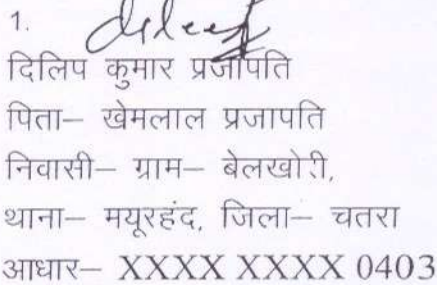 1.
दिलिप कुमार प्रजापति
पिता– खेमलाल प्रजापति
निवासी– ग्राम– बेलखोरी,
थाना– मयूरहंद, जिला– चतरा
आधार– XXXX XXXX 0403